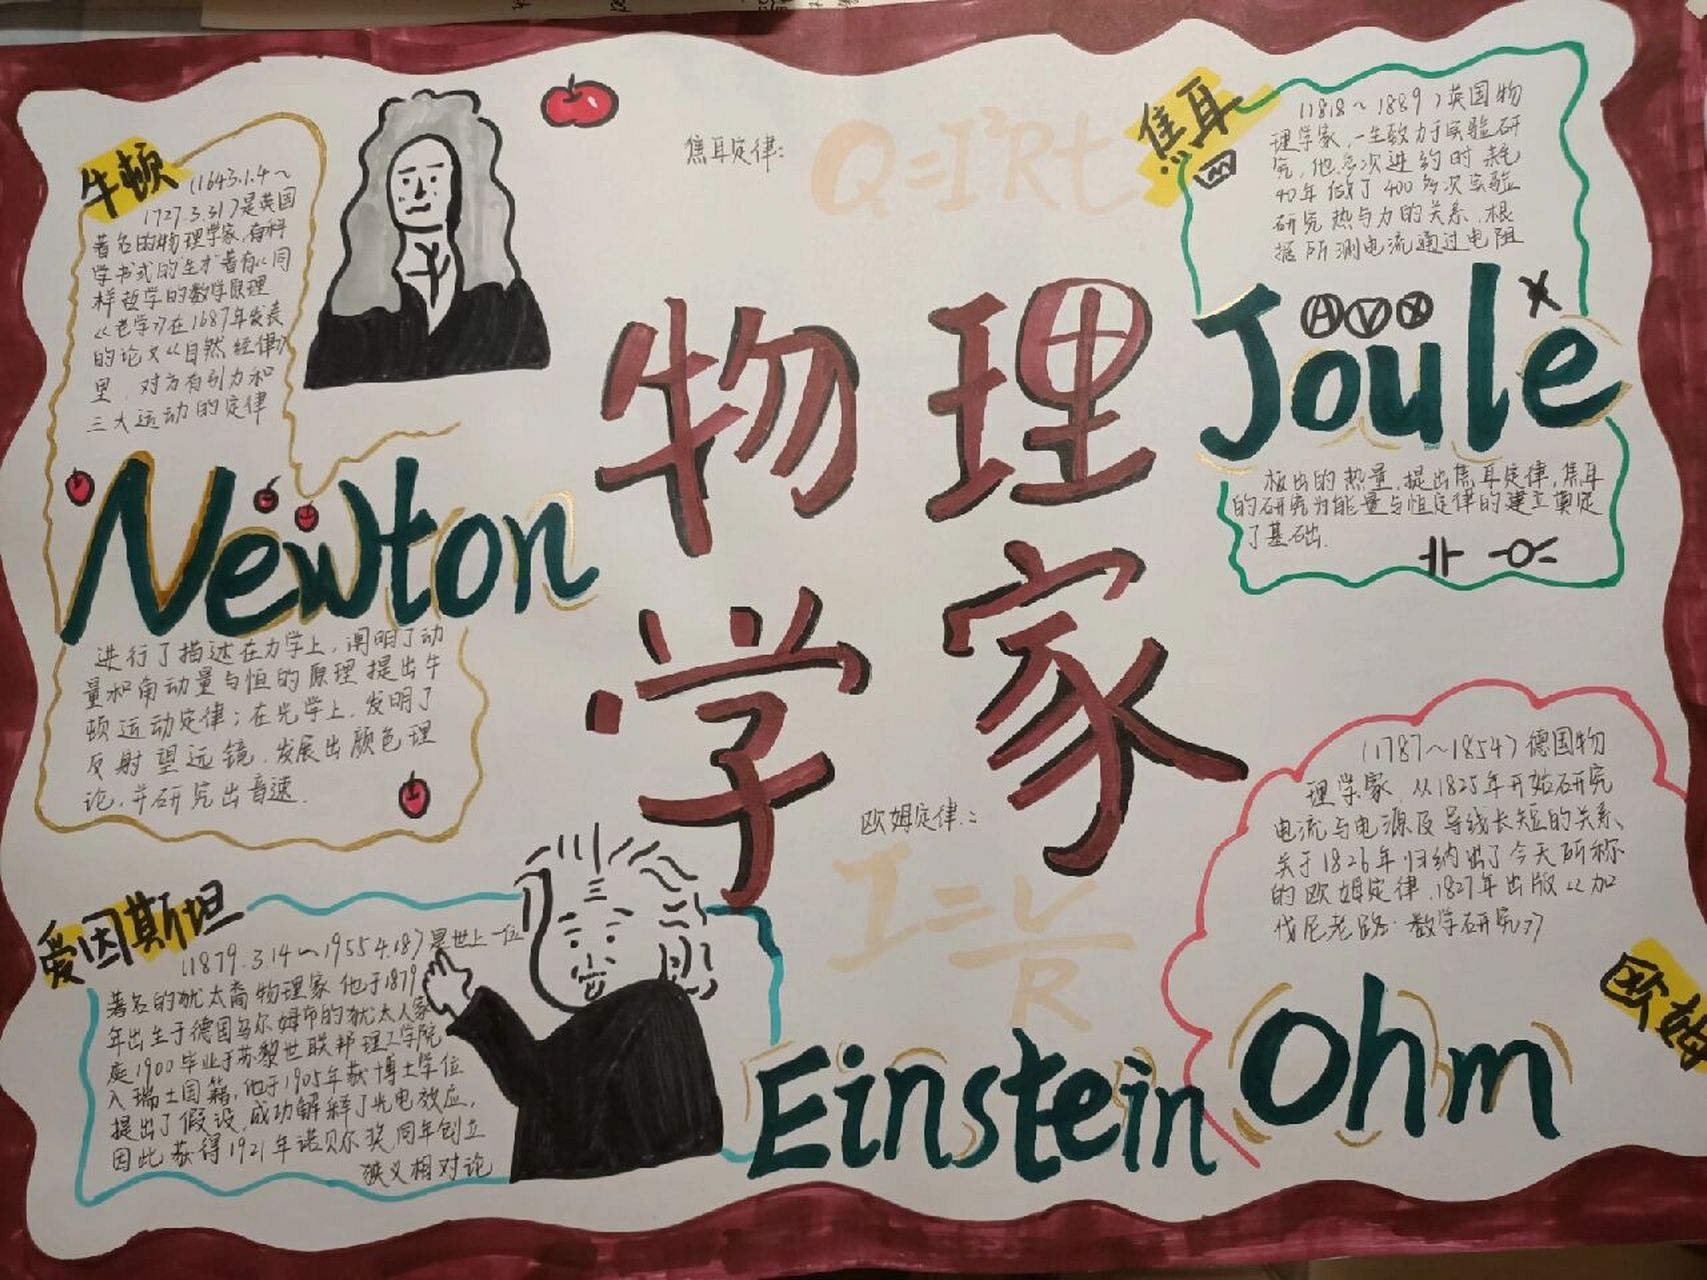 牛顿
(1643.1.4～
1727.3.31)是英国
著名的物理学家,有科
学书式的生才著有《同
样哲学的数学原理
《老学》在1687年发表
的论文《自然 经律》
里，对万有引力和
三大运动的定律
Newton
进行了描述在力学上，阐明了动
量和角动量与恒的原理提出牛
顿运动定律；在光学上，发明了
反射望远镜，发展出颜色理
论，并研究出音速.
爱因斯坦
(1879.3.14～1955.4.18)是世上一位
著名的犹太裔物理家 他于1879
年出生于德国乌尔姆市的犹太人家
庭1900毕业于苏黎世联邦理工学院
入瑞士国籍,他于1905年获博士学位
提出了假设,成功解释了光电效应,
因此获得1921年诺贝尔奖,同年创立
狭义相对论
Einstein
物理
学家
焦耳定律:
Q=I²Rt
欧姆定律:
I=V/R
焦耳
(1818～1889)英国物
理学家,一生致力于实验研
究,他多次进约时耗
40年做了400多次实验
研究热与力的关系,根
据所测电流通过电阻
A V X
Joule
放出的热量,提出焦耳定律,焦耳
的研究为能量与恒定律的建立奠定
了基础.
(1787～1854)德国物
理学家,从1825年开始研究
电流与电源及导线长短的关系、
关于1826年归纳出了今天所称
的欧姆定律,1827年出版《加
伐尼老路·数学研究》
欧姆
Ohm